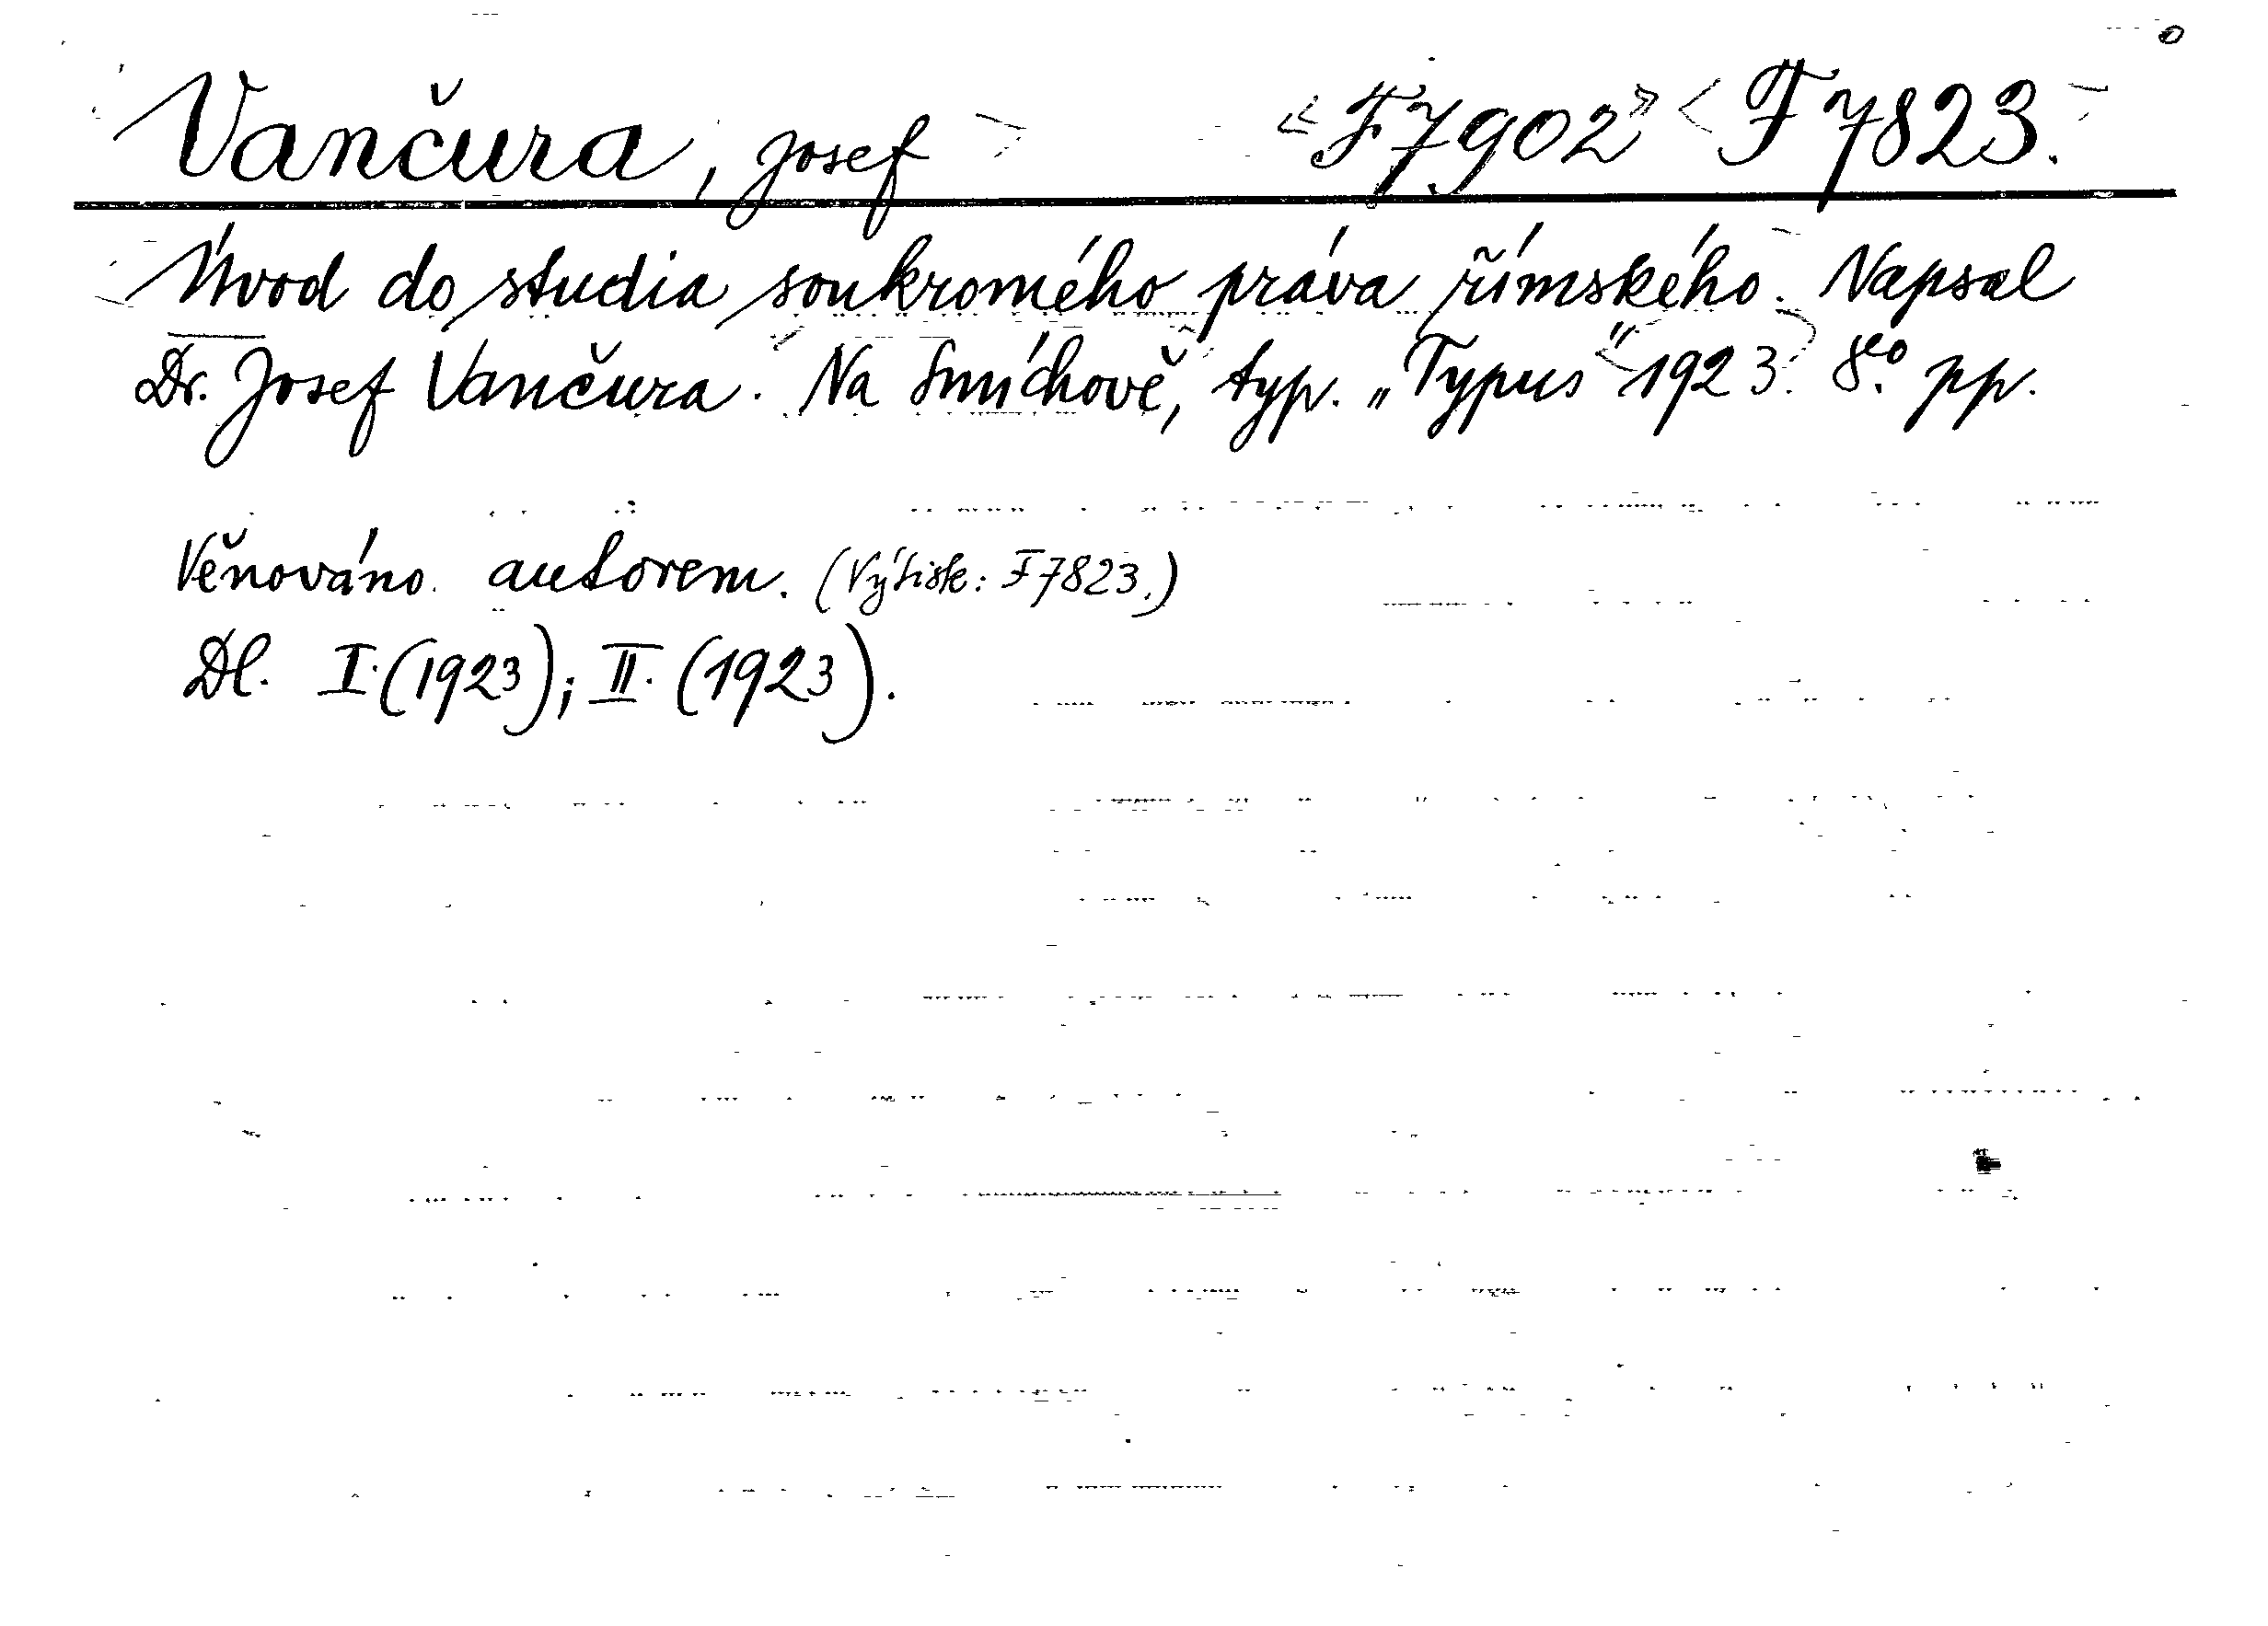 Vančura, Josef «F7902» <F7823.>
Úvod do studia soukromého práva římského. Napsal
Dr. Josef Vančura. Na Smíchově, typ. „Typus“ 1923. 8.º pp.
Věnováno autorem. (Výtisk: F7823.)
Dl. I. (1923); II. (1923).